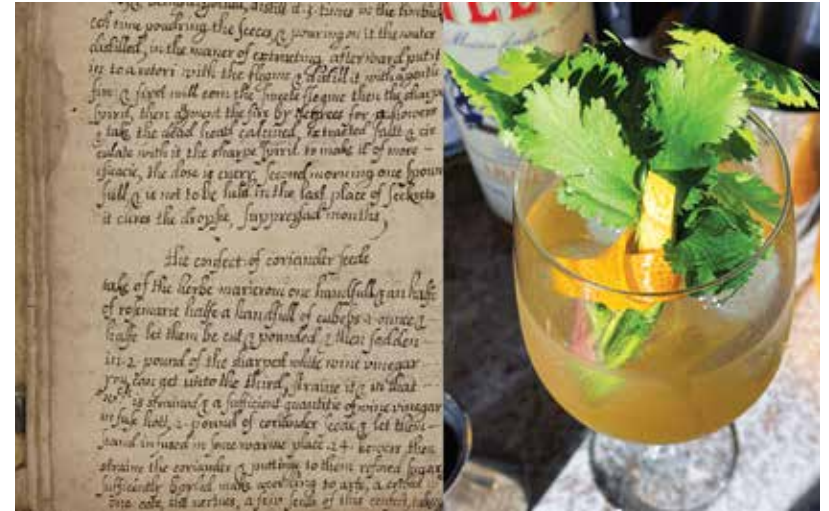 distill it 3 times in the
ech time poudring the feces & pouring on it the water
distilled, in the maner of extracting afterward put it
in to a retort with the flegme & distill it with a gentle
fire & first will com the sweete flegme then the sharpe
spirit, then agment the fire by degrees for howers
take the dead head calcined, extracted salt & cir
culate with it the sharpe spirit to make it of more
eficacie, the dose is every second morning one spoon
full & is not to be held in the last place of secrets
it cures the dropsie, suppressed months,
the confect of coriander seede
take of the herbe marierom one handfull & an halfe
of rosemarie halfe a handfull of cubebs 1 ounce &
halfe let them be cut & pounded & then sodden
in 2 pound of the sharpest white wine vinegar
you can get unto the third, straine it & in that
is strained & a sufficient quantitie of wine vinegar
hott, 2 pound of coriander & let them
stand infused in some warme place 24 howers then
straine the coriander & putting to them refined sugar
sufficiently boyled make according to arte, a
the vertues, a few seeds of this confect,